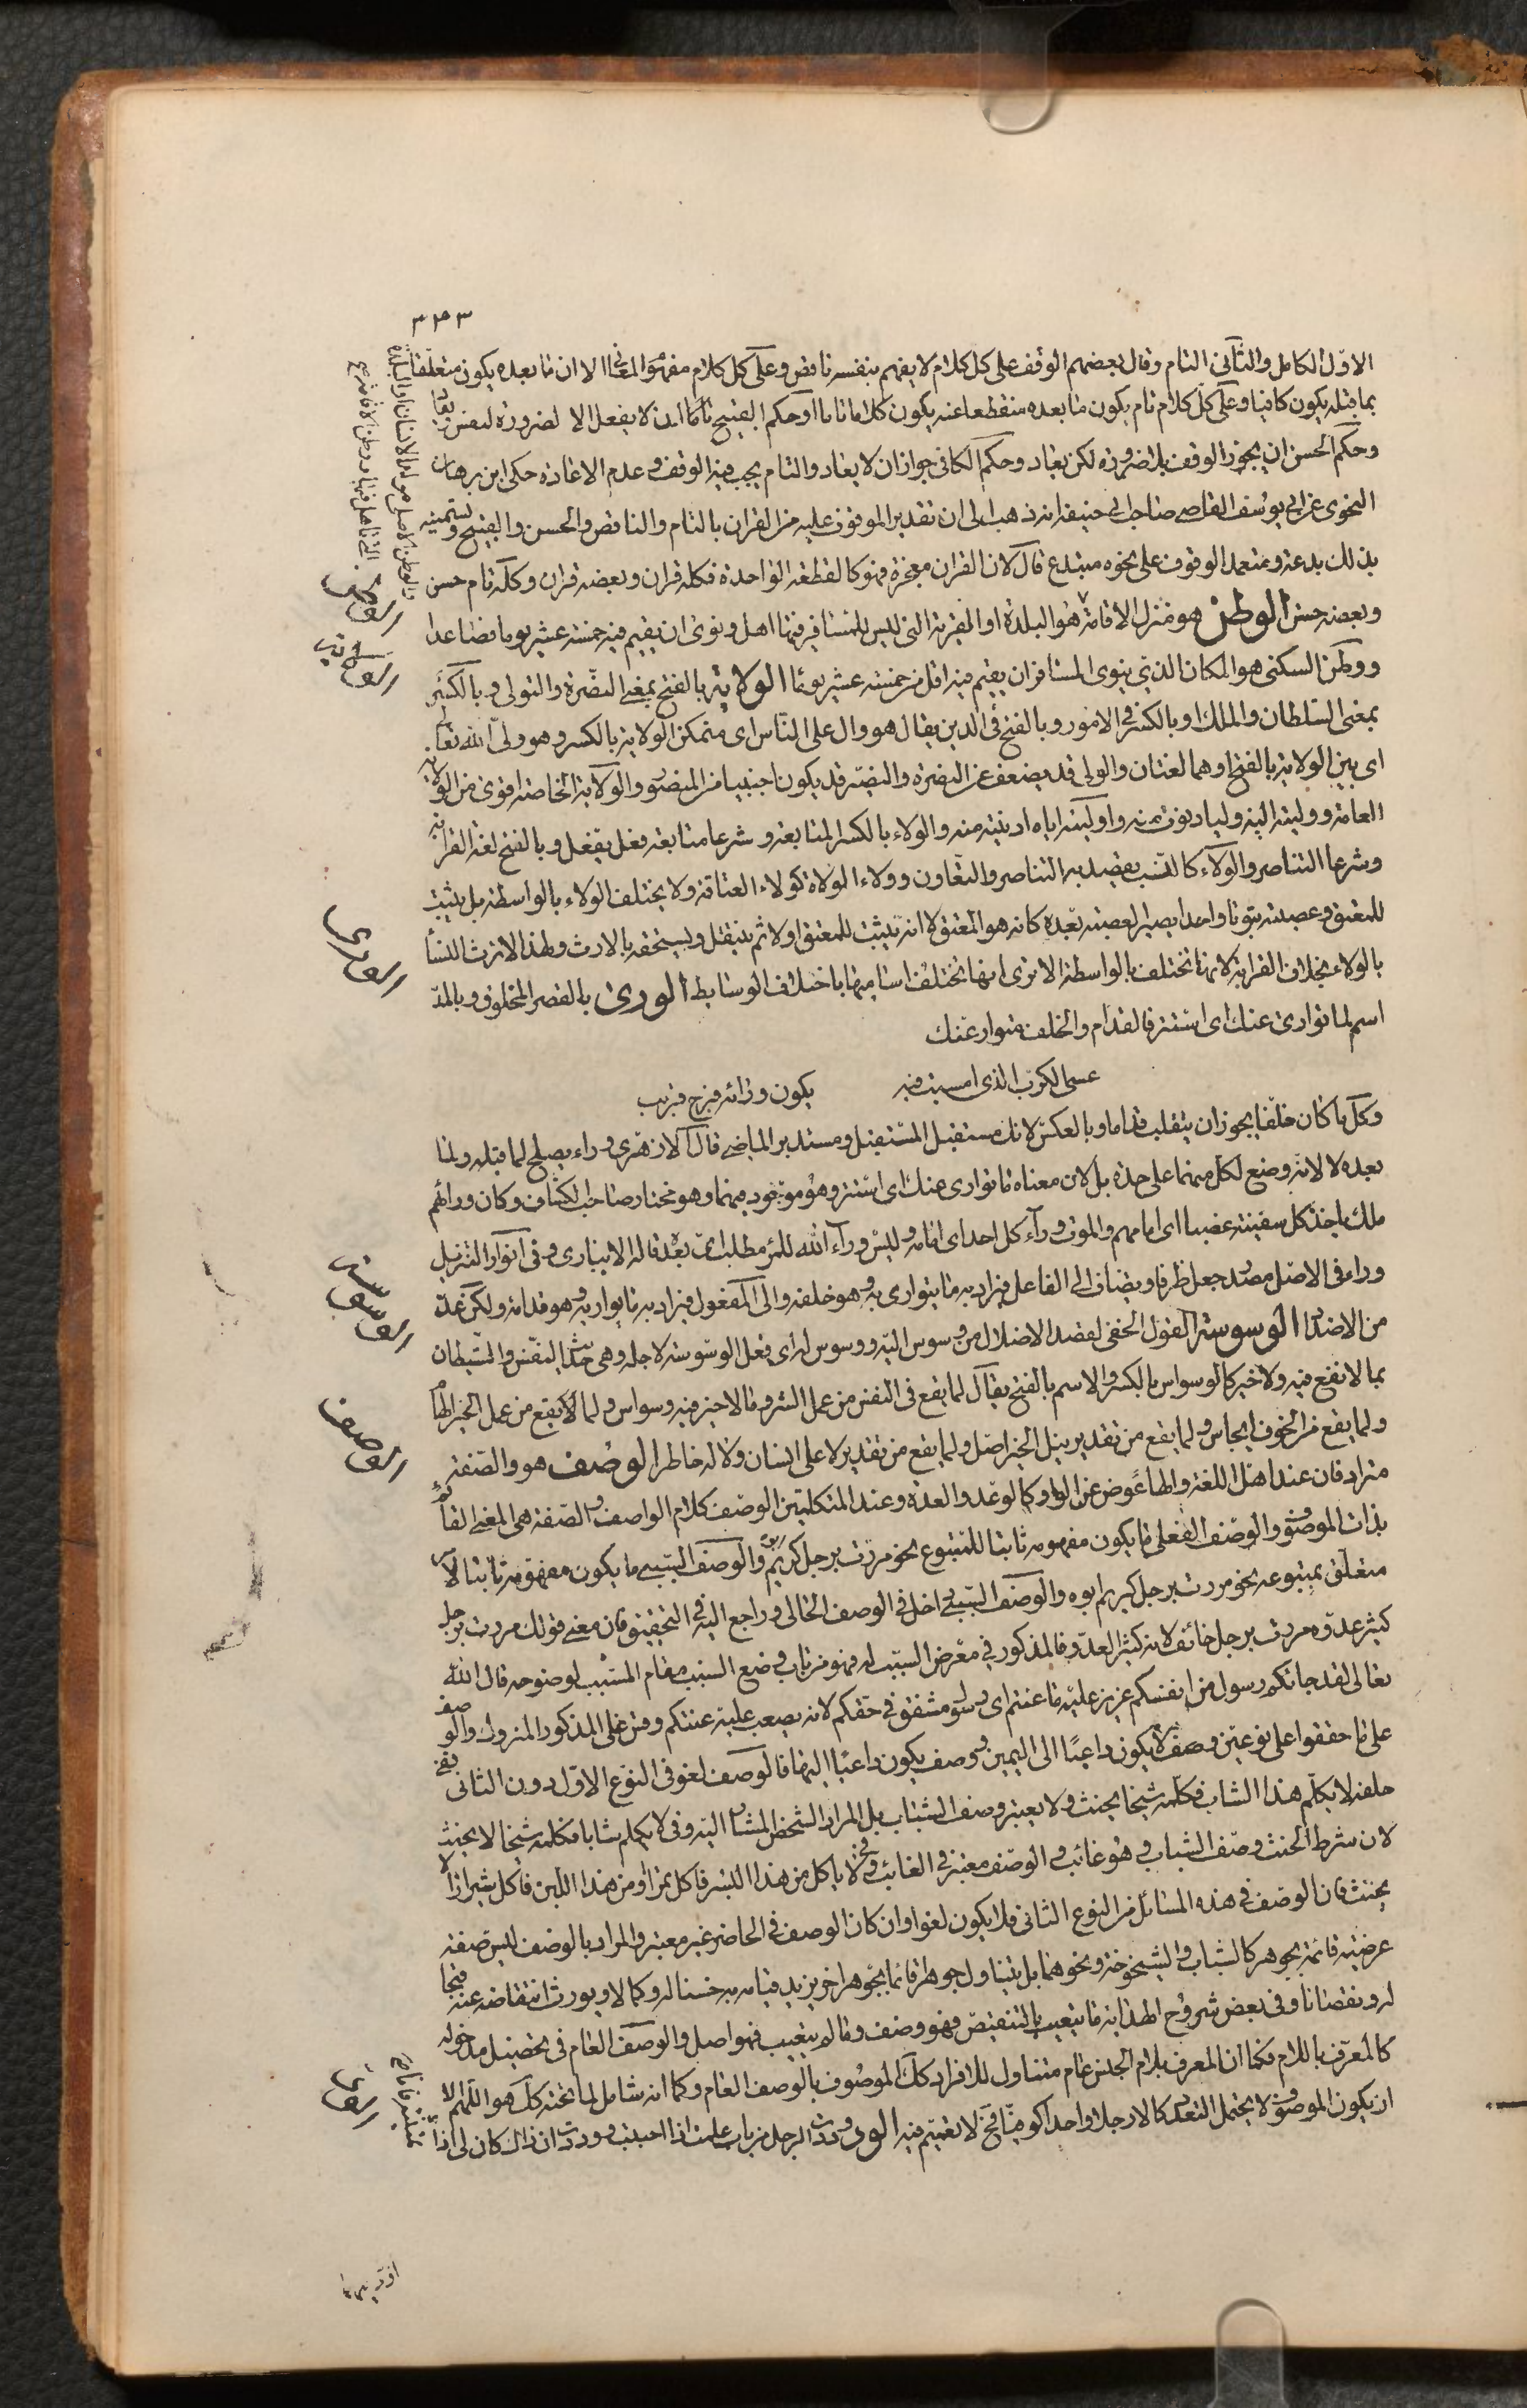 ٣٤٣
الاول الكامل والثاني التام وقال بعضهم الوقف على كل كلام لا يفهم بنفسه ناقص وعلى كل كلام مفهوم المعاني الا ان ما بعده يكون متعلقا
بما قبله يكون كافيا وعلى كل كلام تام يكون ما بعده منقطعا عنه يكون كلاما تاما وحكم القبيح ان لا يفعل الا لضرورة لنفس ويعاد
وحكم الحسن ان يجوز الوقف بلا ضرورة لكن يعاد وحكم الكافي جواز ان لا يعاد والتام يجب فيه الوقف وعدم الاعادة حكى ابن برهان
النحوي عن ابي يوسف القاضي صاحب ابي حنيفة انه ذهب الى ان تقدير الموقوف عليه من القران بالتام والناقص والحسن والقبيح وتسميته
بذلك بدعة ومتعمد الوقوف على نحوه مبتدع قال لان القران معجزة فهو كالقطعة الواحدة فكله قران وبعضه قران وكله تام حسن
وبعضه حسن الوطن هو منزل الاقامة هو البلدة او القرية التي ليس للمسافر فيها اهل ونوى ان يقيم فيه خمسة عشر يوما فصاعدا
ووطن السكنى هو المكان الذي ينوي المسافر ان يقيم فيه اقل من خمسة عشر يوما الولاية بالفتح بمعنى النصرة والتولي وبالكسر
بمعنى السلطان والملك او بالكسر في الامور وبالفتح في الدين يقال هو وال على الناس اي متمكن الولاية بالكسر وهو ولي الله تعالى
اي بين الولاية بالفتح وهما لغتان والولي قد يضعف عن النصرة والنصير قد يكون اجنبيا من المنصور والولاية الخاصة اقوى من الولاية
العامة ووليته اليه وليا دنوت منه واوليته اياه ادنيته منه والولاء بالكسر المتابعة وشرعا متابعة فعل بفعل وبالفتح لغة القرابة
وشرعا التناصر والولاء كالنسب يقصد به التناصر والتعاون وولاء الموالاة كولاء العتاقة ولا يختلف الولاء بالواسطة بل يثبت
للمعتق وعصبته ثبوتا واحدا يصير لعصبته بعده كانه هو المعتق لا انه يثبت للمعتق اولا ثم ينتقل ويستحقه بالارث ولهذا لا ترث النساء
بالولاء بخلاف القرابة لانها تختلف بالواسطة الا ترى انها تختلف اساميها باختلاف الوسايط الورى بالقصر المخلوق وبالمد
اسم لما توارى عنك اي استتر فالقدام والخلف متوار عنك
عسى الكرب الذي امسيت فيه يكون وراءه فرج قريب
وكل ما كان خلفا يجوز ان ينقلب قداما وبالعكس لانك مستقبل المستقبل ومستدبر الماضي قال الازهري وراء يصلح لما قبله ولما
بعده لا لانه وضع لكل منهما على حدة بل لان معناه ما توارى عنك اي استتر وهو موجود فيهما وهو مختار صاحب الكشاف وكان وراءهم
ملك ياخذ كل سفينة غصبا اي امامهم والموت وراء كل احد اي امامه وليس وراء الله للمرء مطلب اي بعده قاله الانباري وفي انوار التنزيل
وراء في الاصل مصدر جعل ظرفا ويضاف الى الفاعل فيراد به ما يتوارى به وهو خلفه والى المفعول فيراد به ما يواريه وهو قدامه ولكن عد
من الاضداد الوسوسة القول الخفي لقصد الاضلال من وسوس اليه ووسوس له اي فعل الوسوسة لاجله وهي حديث النفس والشيطان
بما لا نفع فيه ولا خير كالوسواس بالكسر والاسم بالفتح يقال لما يقع في النفس من عمل الشر وما لا خير فيه وسواس ولما يقع من عمل الخير الهام
ولما يقع من الخوف ايجاس ولما يقع من تقدير نيل الخير امل ولما يقع من تقدير لا على انسان ولا له خاطر الوصف هو والصفة
مترادفان عند اهل اللغة والهاء عوض عن الواو كالوعد والعدة وعند المتكلمين الوصف كلام الواصف والصفة هي المعنى القائم
بذات الموصوف والوصف الفعلي ما يكون مفهومه ثابتا للمتبوع نحو مررت برجل كريم والوصف السببي ما يكون مفهومه ثابتا لامر
متعلق بمتبوعه نحو مررت برجل كريم ابوه والوصف السببي داخل في الوصف الحالي وراجع اليه في التحقيق فان معنى قولك مررت برجل
كثير عدوه مررت برجل خائف لانه كثير العدو فالمذكور في معرض السبب له فهو من باب وضع السبب مقام المسبب لوضوحه قال الله
تعالى لقد جاءكم رسول من انفسكم عزيز عليه ما عنتم اي رسول مشفق في حقكم لانه يصعب عليه عنتكم وقس على المذكور المتروك والوصف
على ما حققوا على نوعين وصف لا يكون داعيا الى اليمين ووصف يكون داعيا اليها فالوصف لغو في النوع الاول دون الثاني ففي
حلف لا يكلم هذا الشاب فكلمه شيخا يحنث ولا يعتبر وصف الشباب بل المراد الشخص المشار اليه وفي لا يكلم شابا فكلمه شيخا لا يحنث
لان شرط الحنث وصف الشباب وهو غائب والوصف معتبر في الغائب وفي لا ياكل من هذا البسر فاكل تمرا او من هذا اللبن فاكل شيرازا لا
يحنث فان الوصف في هذه المسائل من النوع الثاني فلا يكون لغوا وان كان الوصف في الحاضر غير معتبر والمراد بالوصف ليس صفة
عرضية قائمة بجوهر كالشباب والشيخوخة ونحوهما بل يتناول جوهرا قائما بجوهر اخر يزيد قيامه به حسنا له وكمالا ويورث انتقاصه عنه قبحا
له ونقصانا وفي بعض شروح الهداية ما يتعيب بالتنقيص فهو وصف وما لم يتعيب فهو اصل والوصف العام في تحصيل مدخوله
كالمعرف باللام فكما ان المعرف بلام الجنس عام متناول للافراد كذلك الموصوف بالوصف العام وكما انه شامل لما تحته كذلك هو اللهم الا
ان يكون الموصوف لا يحتمل التعدد كالا رجلا واحدا كوفيا فح لا تعميم فيه الود وددت الرجل من باب علمت اذا احببته ووددت ان ذاك كان لي اذا
الوطن
الولاية
الورى
الوسوسة
الوصف
الود